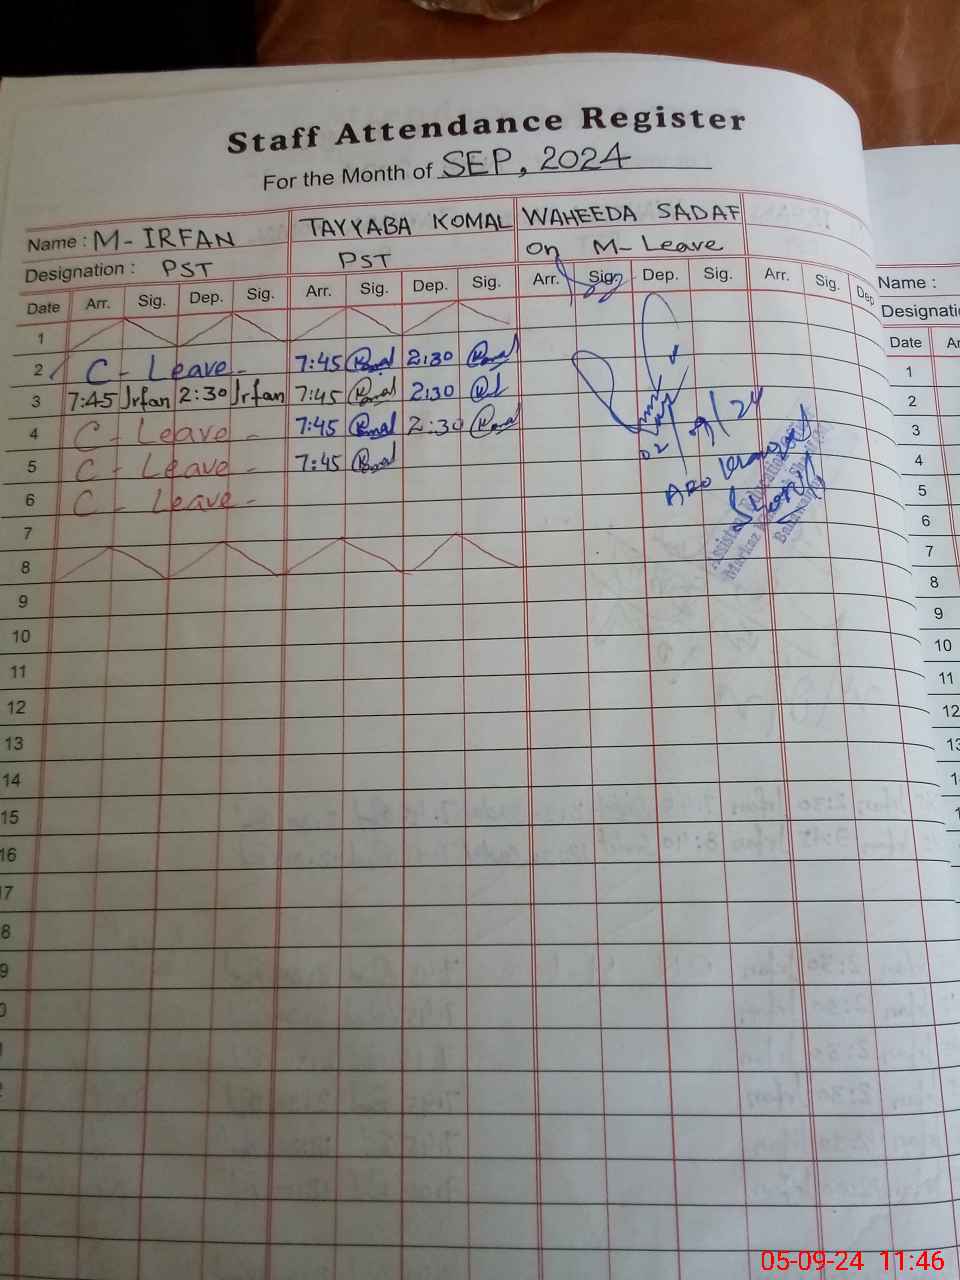 Staff Attendance Register
For the Month of SEP, 2024
Name : M-IRFAN TAYYABA KOMAL WAHEEDA SADAF
Designation : PST PST On M-Leave
Date Arr. Sig. Dep. Sig. Arr. Sig. Dep. Sig. Arr. Sig. Dep. Sig. Arr. Sig. Dep
1
2 C - Leave - 7:45 Komal 2:30 Komal
3 7:45 Irfan 2:30 Irfan 7:45 Komal 2:30
4 C - Leave - 7:45 Komal 2:30 Komal
5 C - Leave - 7:45 Komal
6 C - Leave -
7
8
9
10
11
12
13
14
15
16
17
8
9
0
02/9/24
Name :
Designati
Date Ar
1
2
3
4
5
6
7
8
9
10
11
12
13
05-09-24 11:46